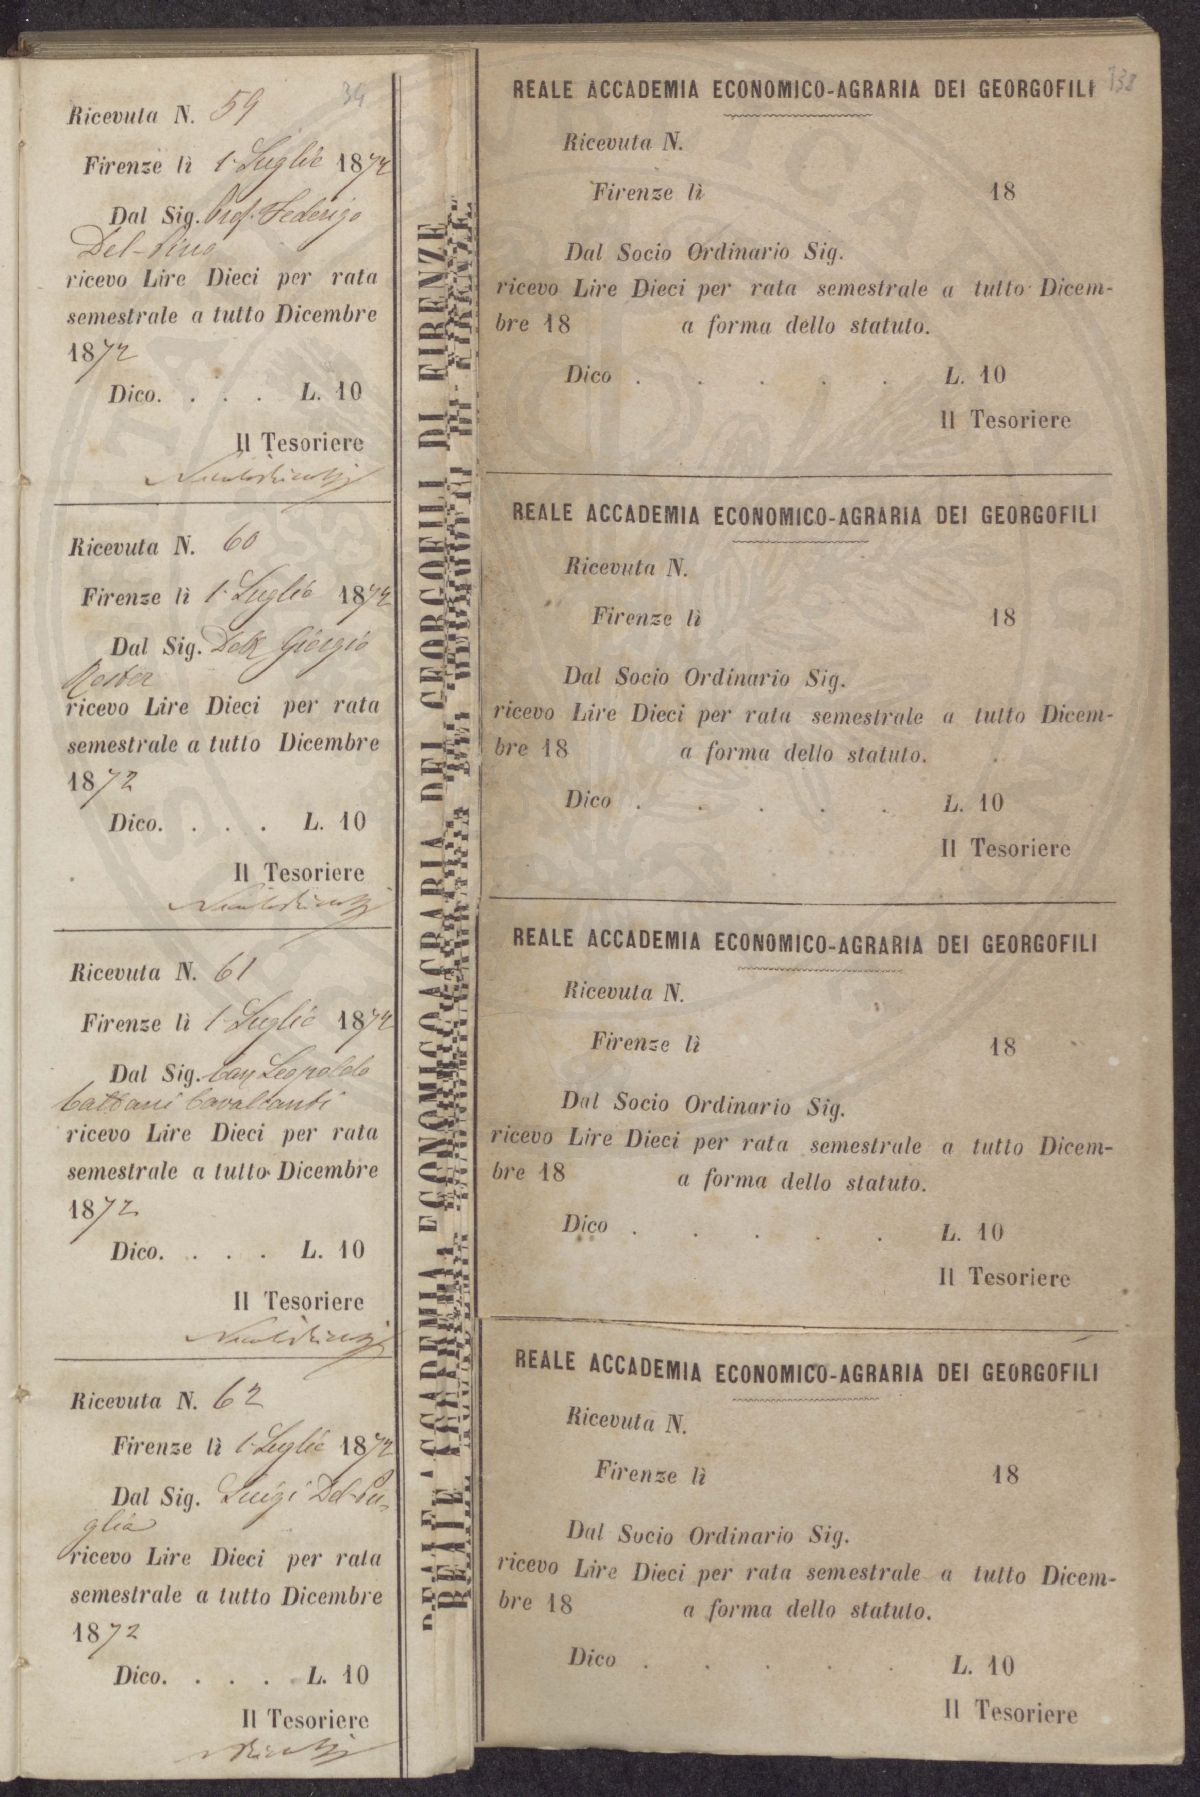 34
Ricevuta N. 59
Firenze lì 1. Luglio 1872
Dal Sig. Prof. Federigo
Del-Pino
ricevo Lire Dieci per rata
semestrale a tutto Dicembre
1872
Dico. . . . L. 10
Il Tesoriere
Ricevuta N. 60
Firenze lì 1. Luglio 1872
Dal Sig. Dott. Giorgio
Roster
ricevo Lire Dieci per rata
semestrale a tutto Dicembre
1872
Dico. . . . L. 10
Il Tesoriere
Ricevuta N. 61
Firenze lì 1. Luglio 1872
Dal Sig. Cav. Leopoldo
Cattani Cavalcanti
ricevo Lire Dieci per rata
semestrale a tutto Dicembre
1872
Dico. . . . L. 10
Il Tesoriere
Ricevuta N. 62
Firenze lì 1. Luglio 1872
Dal Sig. Luigi Del-Pu-
glia
ricevo Lire Dieci per rata
semestrale a tutto Dicembre
1872
Dico. . . . . L. 10
Il Tesoriere
REALE ACCADEMIA ECONOMICO AGRARIA DEI GEORGOFILI DI FIRENZE
138
REALE ACCADEMIA ECONOMICO-AGRARIA DEI GEORGOFILI
Ricevuta N.
Firenze lì 18
Dal Socio Ordinario Sig.
ricevo Lire Dieci per rata semestrale a tutto Dicem-
bre 18 a forma dello statuto.
Dico . . . . . L. 10
Il Tesoriere
REALE ACCADEMIA ECONOMICO-AGRARIA DEI GEORGOFILI
Ricevuta N.
Firenze lì 18
Dal Socio Ordinario Sig.
ricevo Lire Dieci per rata semestrale a tutto Dicem-
bre 18 a forma dello statuto.
Dico . . . . . L. 10
Il Tesoriere
REALE ACCADEMIA ECONOMICO-AGRARIA DEI GEORGOFILI
Ricevuta N.
Firenze lì 18
Dal Socio Ordinario Sig.
ricevo Lire Dieci per rata semestrale a tutto Dicem-
bre 18 a forma dello statuto.
Dico . . . . . L. 10
Il Tesoriere
REALE ACCADEMIA ECONOMICO-AGRARIA DEI GEORGOFILI
Ricevuta N.
Firenze lì 18
Dal Socio Ordinario Sig.
ricevo Lire Dieci per rata semestrale a tutto Dicem-
bre 18 a forma dello statuto.
Dico . . . . . L. 10
Il Tesoriere